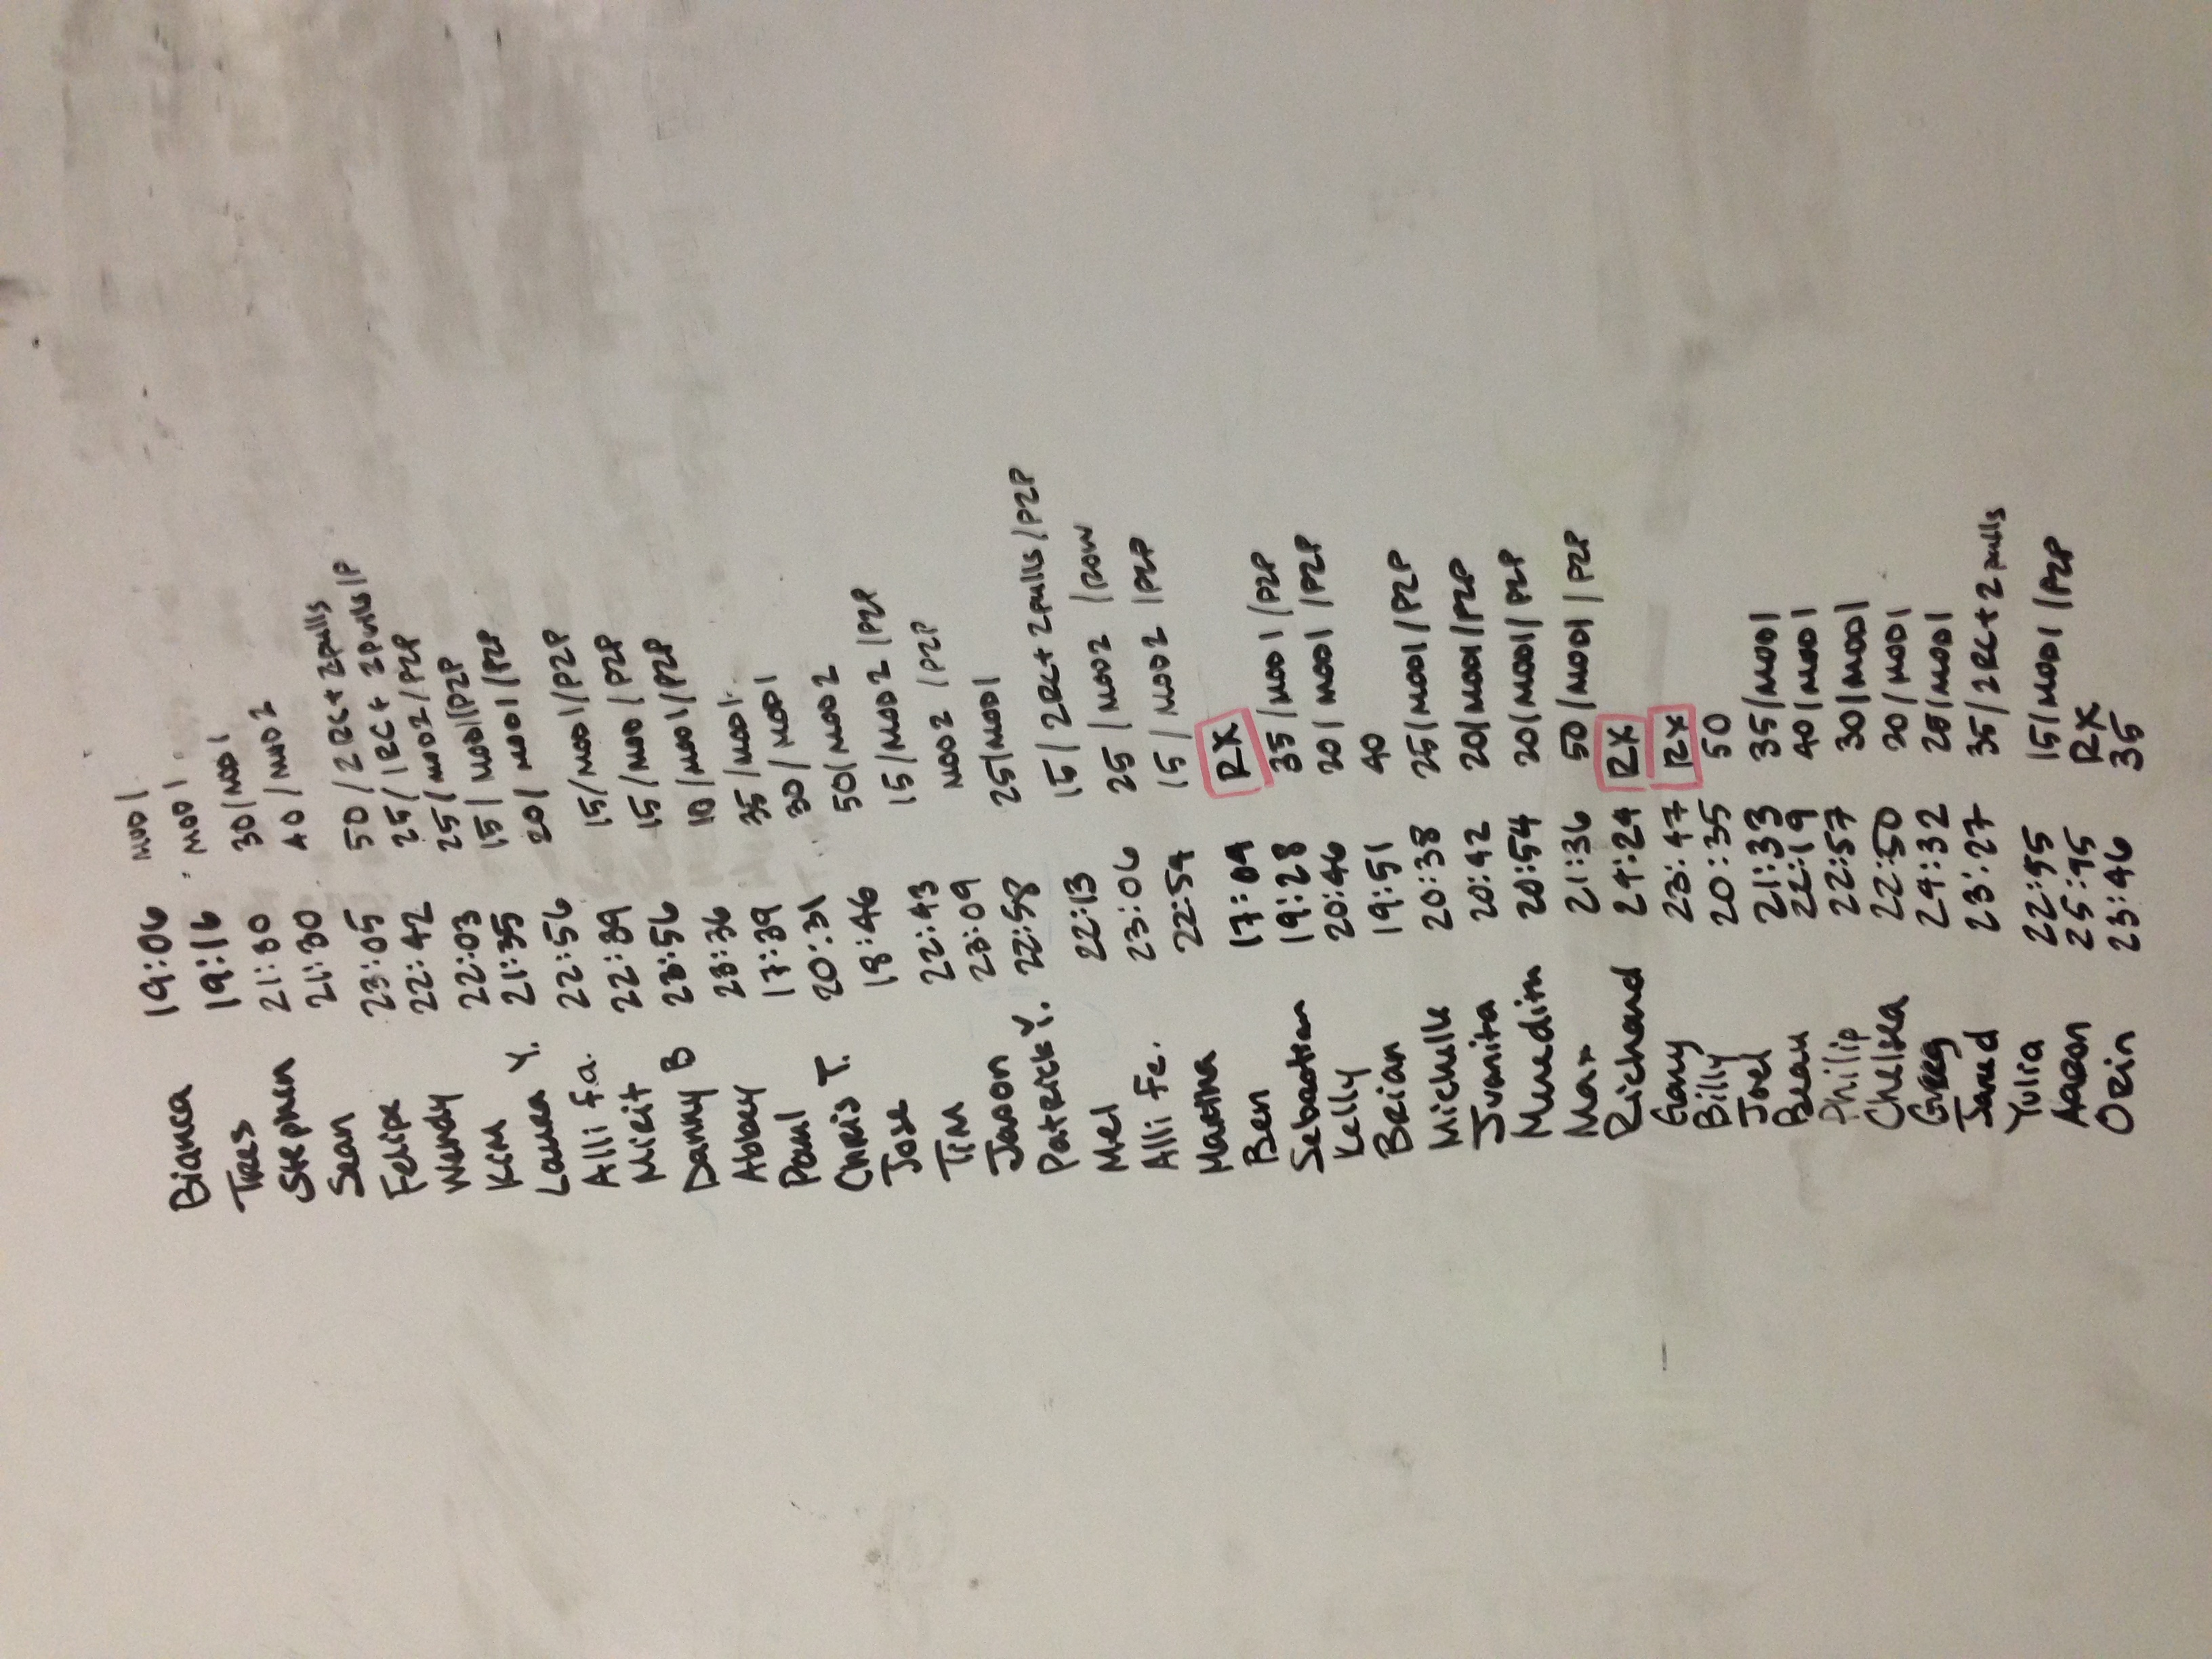 Bianca 19:06 MOD1
Tres 19:16 MOD1
Stephen 21:30 30/MOD1
Sean 21:30 40/MOD2
Felipe 23:05 50/2RC+2pulls
Wendy 22:42 25/1RC+2pulls/P
Kim 22:03 25/MOD2/P2P
Laura Y. 21:35 15/MOD1/P2P
Alli Fa. 22:56 20/MOD1/P2P
22:39 15/MOD1/P2P
Danny B 23:56 15/MOD/P2P
Abbey 23:36 10/MOD1/P2P
Paul 17:39 35/MOD1
Chris T. 20:31 30/MOD1
Jose 18:46 50/MOD2
Tim 22:43 15/MOD2/P2P
Jason 23:09 MOD2/P2P
Patrick Y. 22:58 25/MOD1
Mel 22:13 15/2RC+2pulls/P2P
Alli Fe. 23:06 25/MOD2/ROW
Martha 22:54 15/MOD2/P2P
Ben 17:09 RX
Sebastian 19:28 35/MOD1/P2P
Kelly 20:46 20/MOD1/P2P
Brian 19:51 40
Michelle 20:38 25/MOD1/P2P
Juanita 20:42 20/MOD1/P2P
Meredith 20:54 20/MOD1/P2P
Max 21:36 50/MOD1/P2P
Richard 24:24 RX
Gary 23:47 RX
Billy 20:35 50
Joel 21:33 35/MOD1
Beau 22:19 40/MOD1
Philip 22:57 30/MOD1
Chelsea 22:50 20/MOD1
Greg 24:32 25/MOD1
Jared 23:27 35/2RC+2pulls
Yulia 22:55 15/MOD1/P2P
Aaron 25:45 RX
Orin 23:46 35